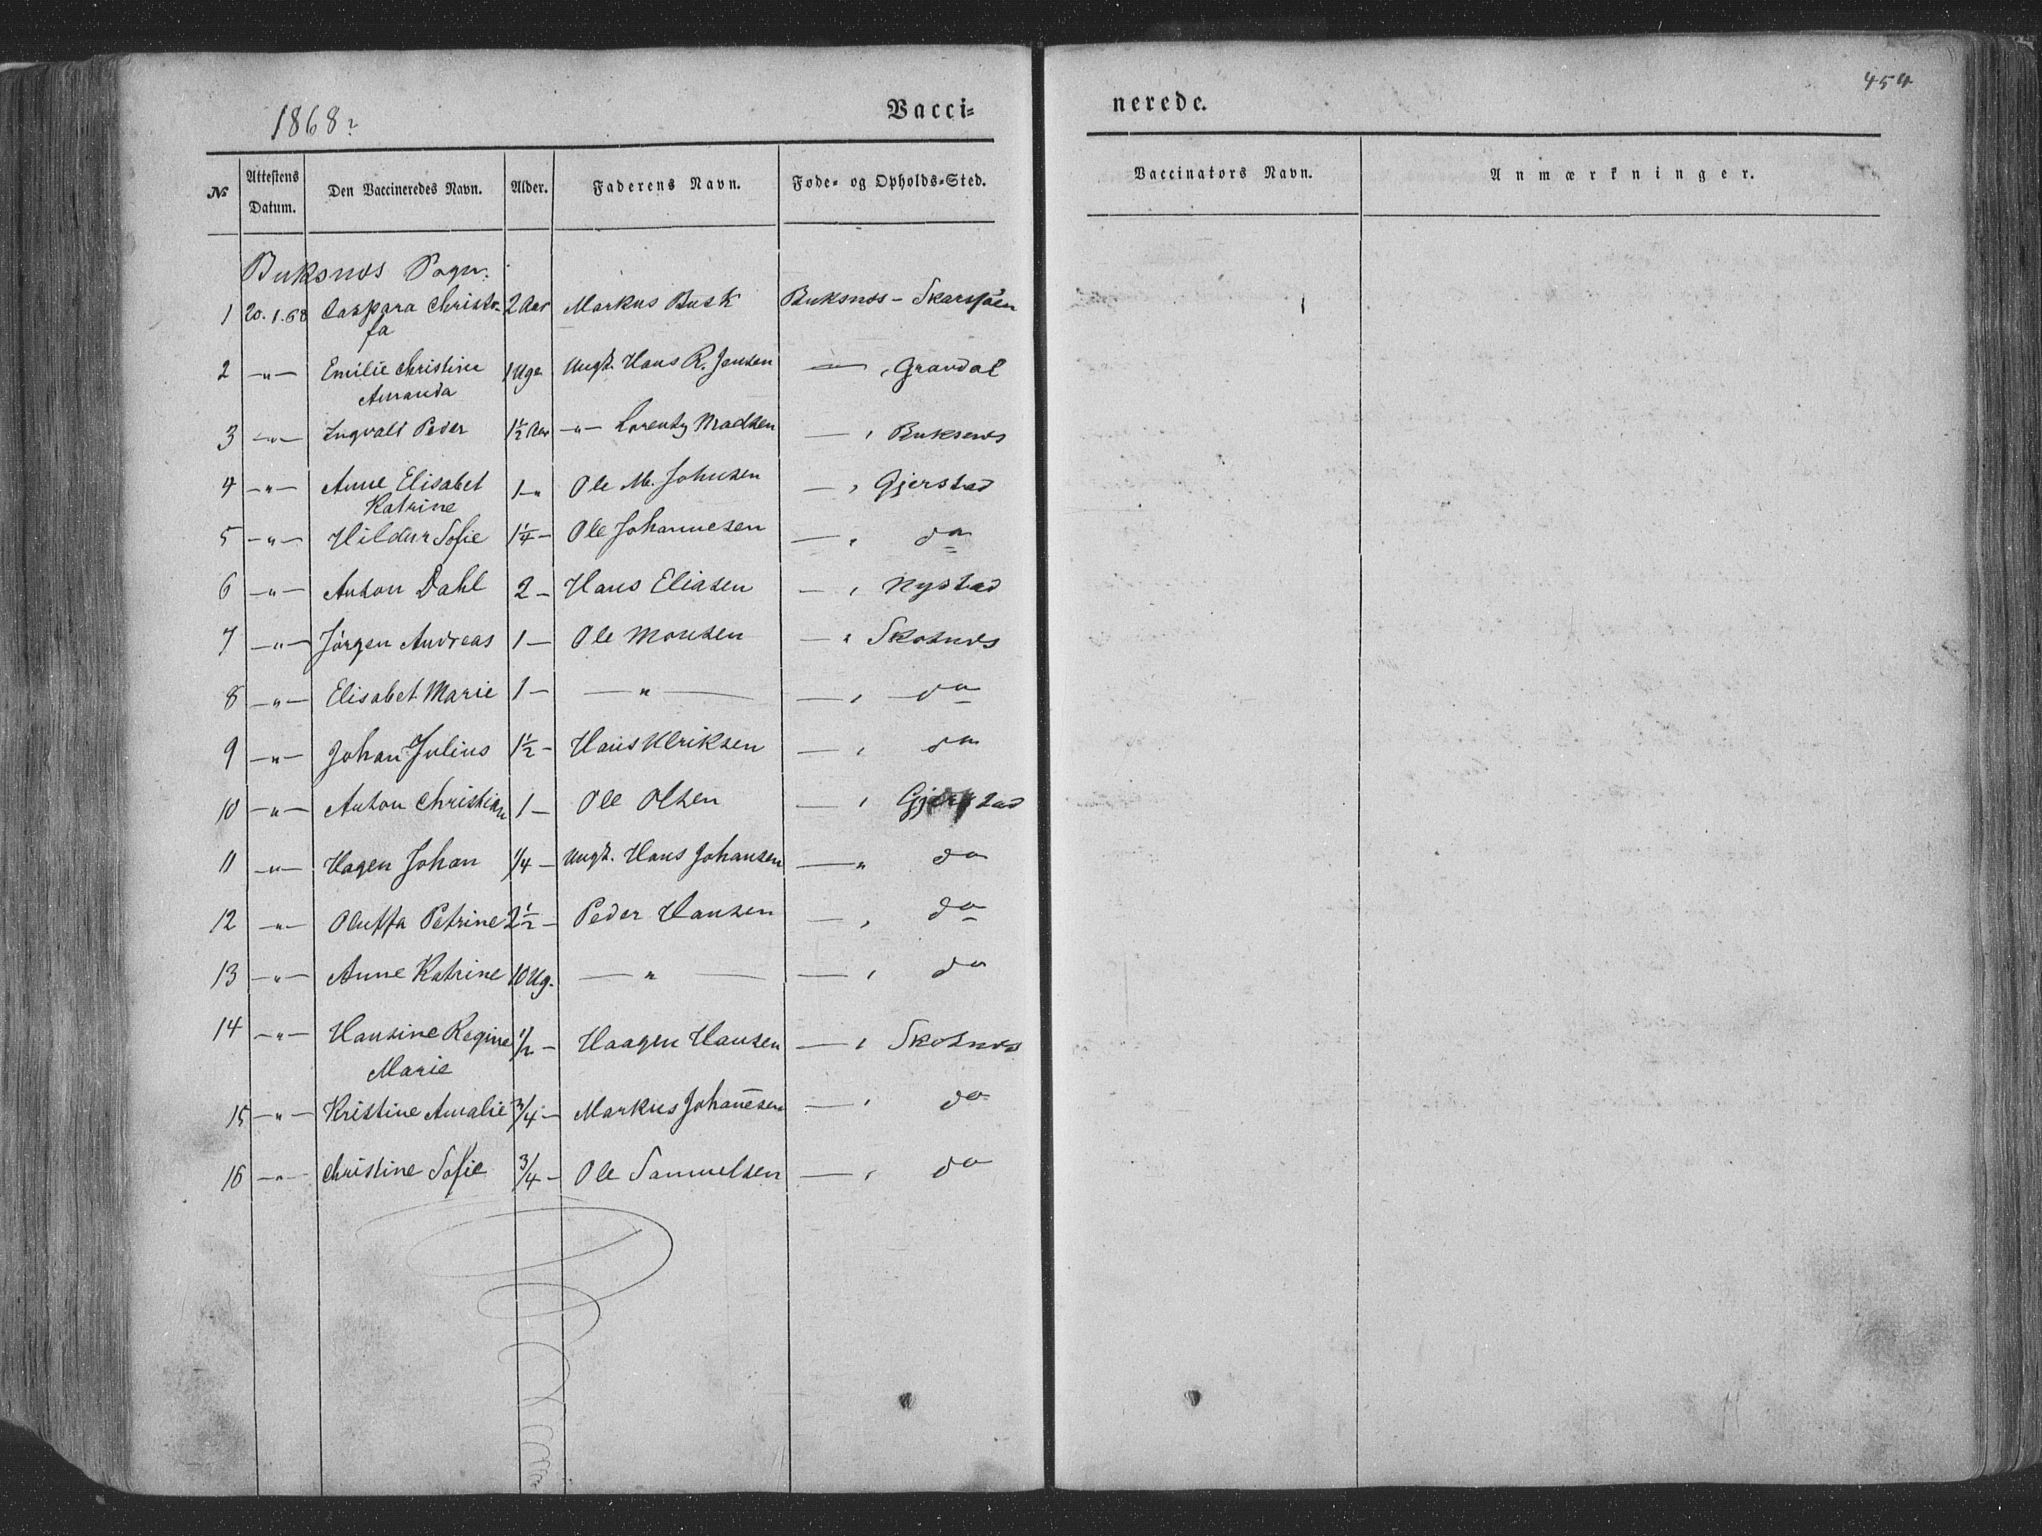 454
1868?
Vacci-
nerede.
№ Attestens Datum. Den Vaccineredes Navn. Alder. Faderens Navn. Føde- og Opholds-Sted. Vaccinators Navn. Anmærkninger.
Buksnes Sogn.
1 20.1.68 Caspara Christo- 2 Aar Markus Busk Buksnes -
fa
2 -"- Emilie Christine 1 Uge Ungk. Hans R. Jensen — , Gravdal
Amanda
3 -"- Ingvall Peder 1½ Aar -"- Lorentz Madsen — , Buksnes
4 -"- Anne Elisabet 1 -" Ole M. Johnsen — , Gjerstad
Katrine
5 -"- Hildur Sofie 1¼ - Ole Johannesen — , do
6 -"- Anton Dahl 2 - Hans Eliasen — , Nystad
7 -"- Jørgen Andreas 1 - Ole Monsen — " Skotnes
8 -"- Elisabet Marie 1 - — " — — , do
9 -"- Johan Julius 1½ - Hans Ulriksen — , do
10 -"- Anton Christian 1 - Ole Olsen — , Gjerstad
11 -"- Hagen Johan 1/4 - Ungk. Hans Johansen — " do
12 -"- Oluffa Petrine 2½ - Peder Hansen — , do
13 -"- Anne Katrine 10 Ug. — " — — , do
14 -"- Hansine Regine 1/2 - Haagen Hansen — , Skotnes
Marie
15 -"- Kristine Amalie 3/4 - Markus Johan̄esen — , do
16 -"- Christine Sofie 3/4 - Ole Samuelsen — , do